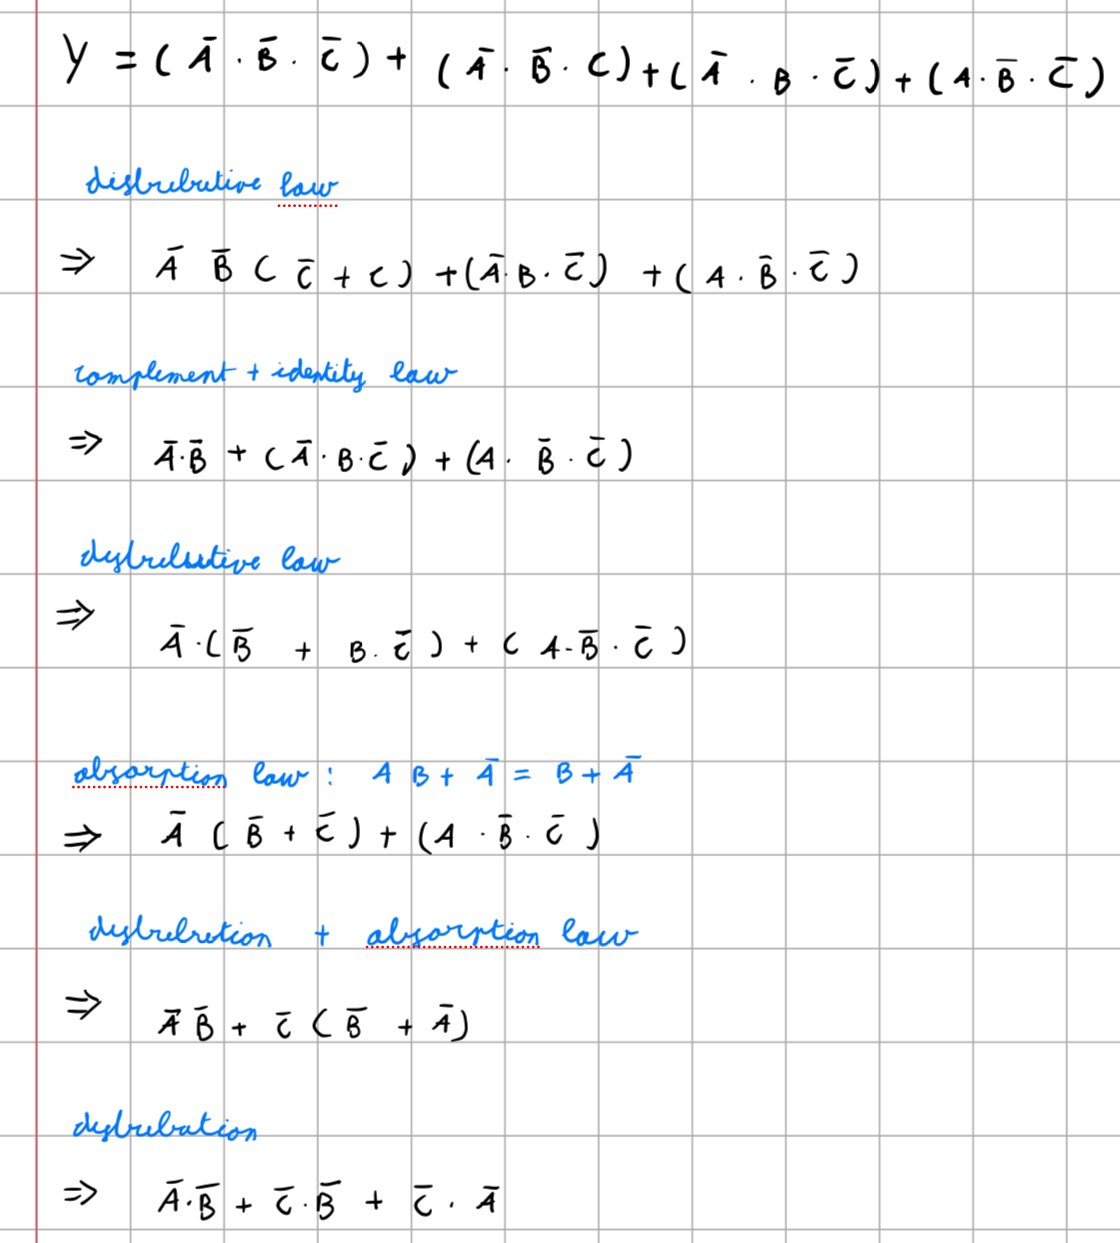 Y = ( Ā · B̄ · C̄ ) + ( Ā · B̄ · C ) + ( Ā · B · C̄ ) + ( A · B̄ · C̄ )
distributive law
⇒ Ā B̄ ( C̄ + C ) + ( Ā · B · C̄ ) + ( A · B̄ · C̄ )
complement + identity law
⇒ Ā · B̄ + ( Ā · B · C̄ ) + ( A · B̄ · C̄ )
distributive law
⇒ Ā · ( B̄ + B · C̄ ) + ( A · B̄ · C̄ )
absorption law : A B + Ā = B + Ā
⇒ Ā ( B̄ + C̄ ) + ( A · B̄ · C̄ )
distribution + absorption law
⇒ Ā B̄ + C̄ ( B̄ + Ā )
distribution
⇒ Ā · B̄ + C̄ · B̄ + C̄ · Ā